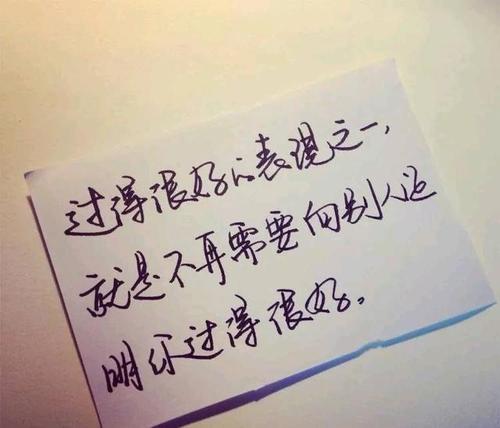 过得很好的表现之一,
就是不再需要向别人证
明你过得很好.